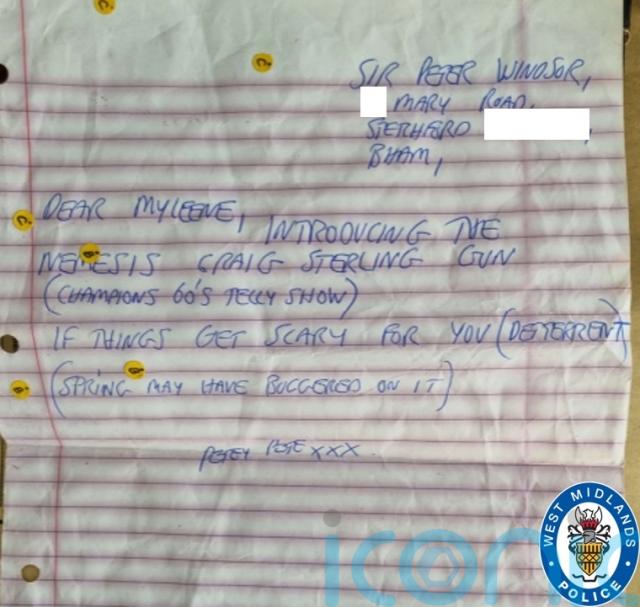 SIR PETER WINDSOR,
MARY ROAD,
STETCHFORD
BHAM,
DEAR MYLEENE, INTRODUCING THE
NEMESIS CRAIG STERLING GUN
(CHAMPIONS 60'S TELLY SHOW)
IF THINGS GET SCARY FOR YOU (DETERRENT)
(SPRING MAY HAVE BUGGERED ON IT)
PETEY PETE XXX
WEST MIDLANDS
POLICE
icon